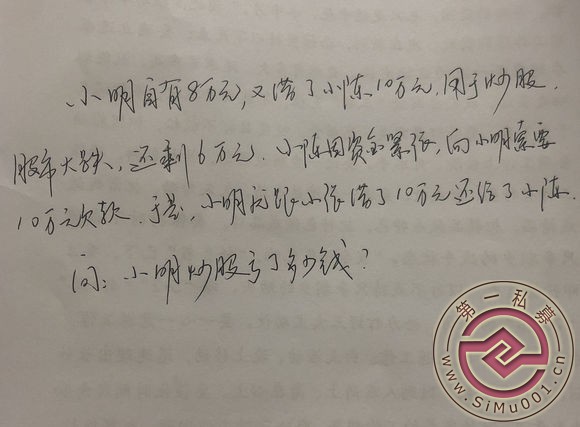 小明自有8万元,又借了小陈10万元,用于炒股.
股市大跌,还剩6万元.小陈因资金紧张,向小明索要
10万元欠款.于是,小明又跟小张借了10万元还给了小陈.
问:小明炒股亏了多少钱?
第一私募
www.SiMu001.cn